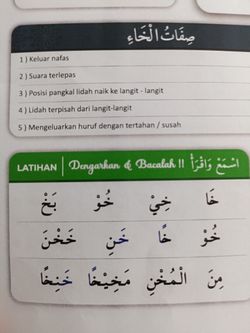 صِفَاتُ الْخَاءِ
1 ) Keluar nafas
2 ) Suara terlepas
3 ) Posisi pangkal lidah naik ke langit - langit
4 ) Lidah terpisah dari langit-langit
5 ) Mengeluarkan huruf dengan tertahan / susah
LATIHAN | Dengarkan & Bacalah !! اِسْمَعْ وَاقْرَأْ
خَا خِيْ خُوْ بَخْ
خُوْ خًا خَنِ خَخْنَ
مِنَ الْمُخْنِ مَخِيْخًا خَنِخًا